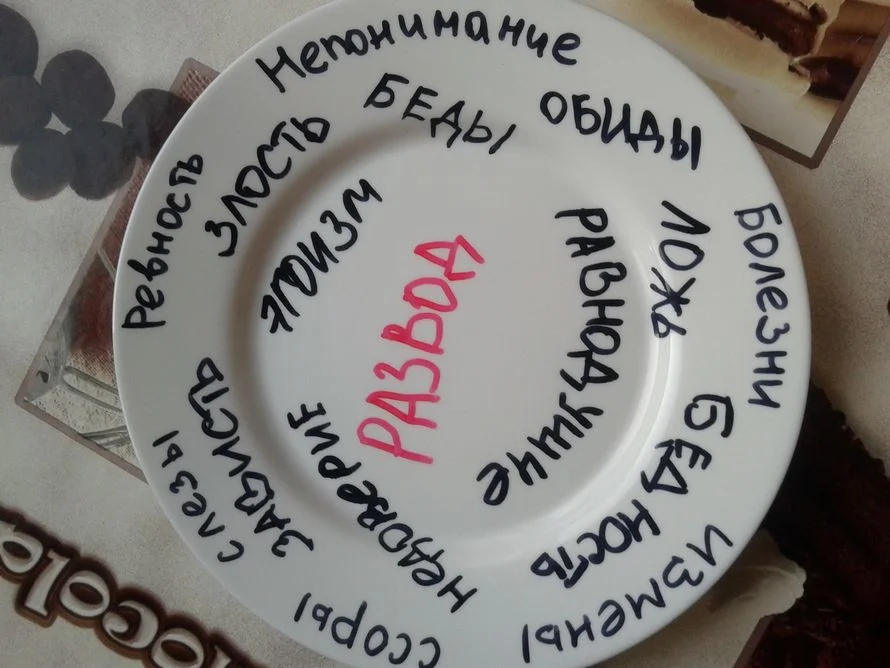 Непонимание
БЕДЫ
ОБИДЫ
Болезни
ЛОЖЬ
РАВНОДУШИЕ
БЕДНОСТЬ
ИЗМЕНЫ
ССОРЫ
НЕДОВЕРИЕ
ЗАВИСТЬ
слезы
Ревность
ЗЛОСТЬ
ЭГОИЗМ
РАЗВОД